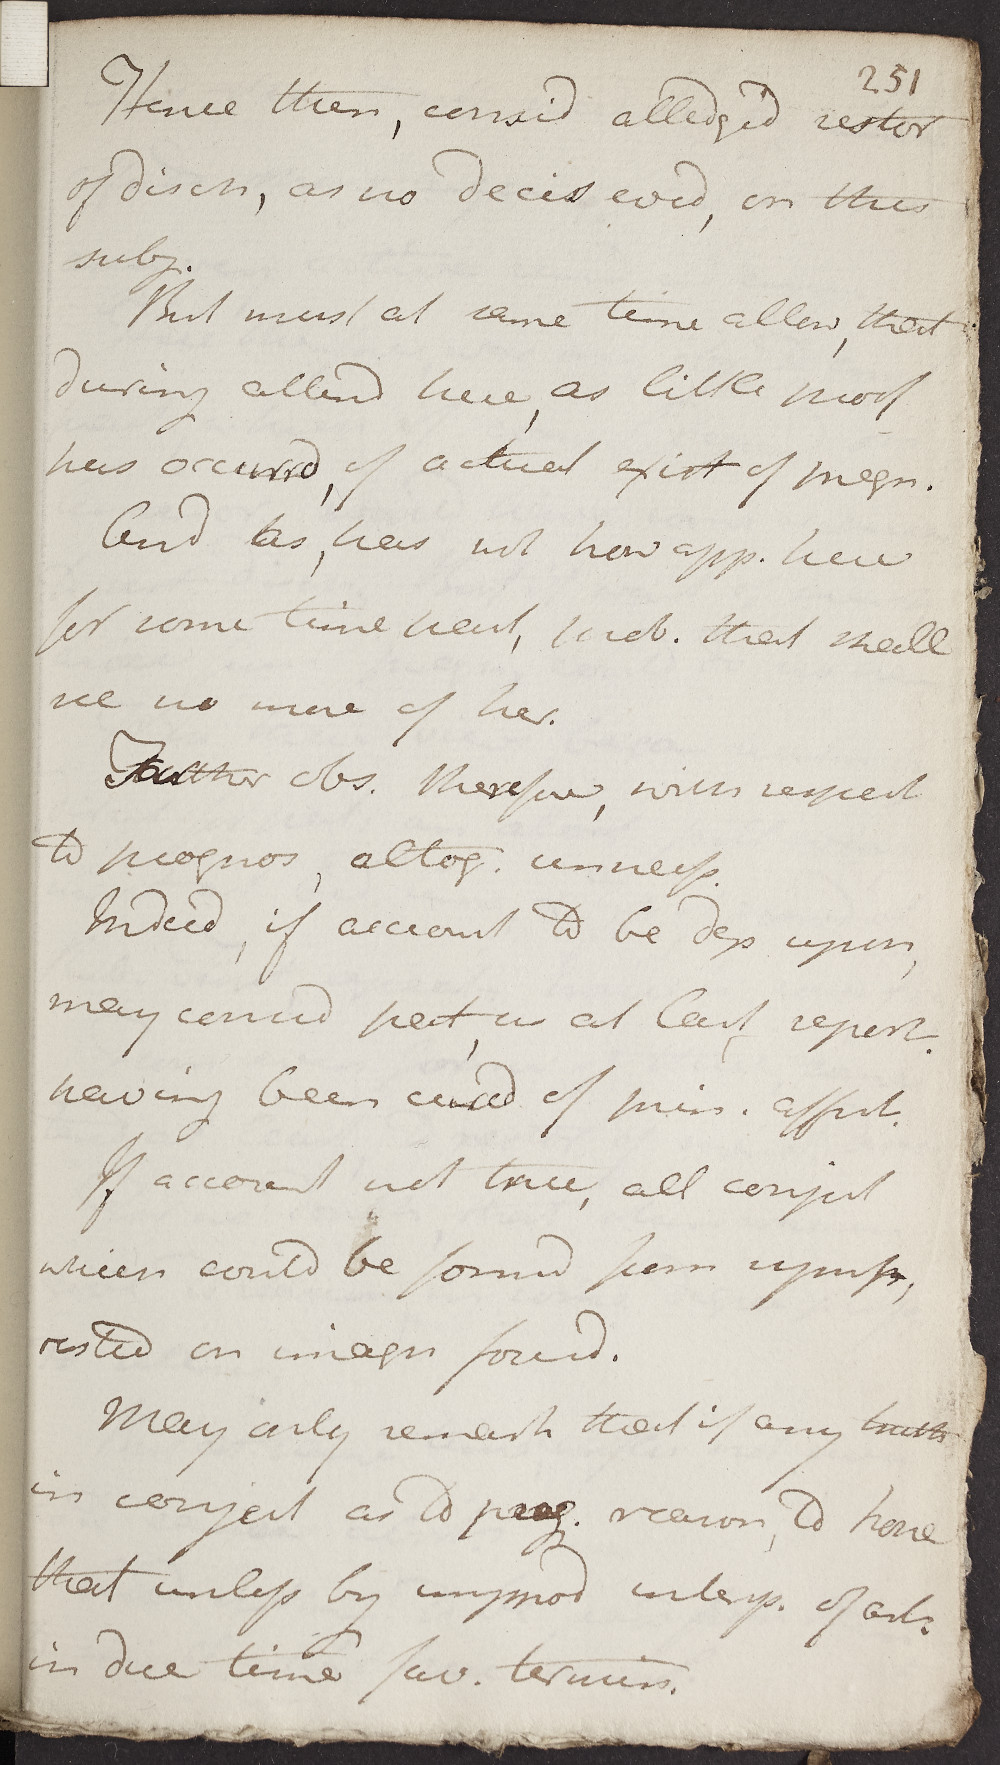 251
Hence then, consid alledg'd restor
of disch, as no decis evid, on this
subj.
But must at same time allow, that
during attend here, as little proof
has occurrd, of actual exist of pregn.
And as, has not now app. here
for some time past, prob. that shall
see no more of her.
Farther obs. therefore, with respect
to prognos, altog. unness.
Indeed, if account to be dep upon,
may consid pat, as at last report.
having been cured of prin. affect.
If account not true, all conject
which could be formd from sympt,
rested on imagn found.
May only remark that if any truth
in conject as to preg. reason, to hope
that unless by improd interp. of art.
in due time fav. termin.